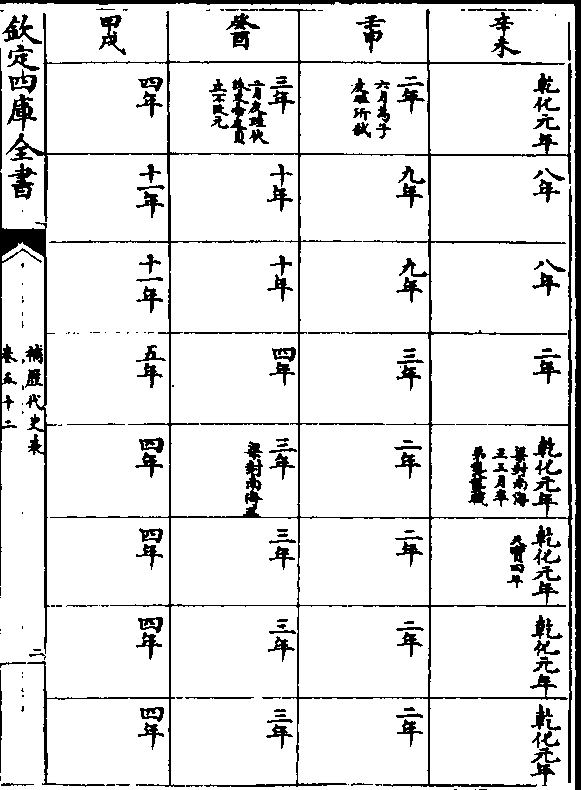 辛未
乾化元年
八年
八年
二年
乾化元年
梁封南海
王三月卒
弟龑襲職
乾化元年
天寶四年
乾化元年
乾化元年
壬申
二年
六月為子
友珪所弑
九年
九年
三年
二年
二年
二年
二年
癸酉
三年
二月友珪伏
誅末帝友貞
立不改元
十年
十年
四年
三年
梁封南海王
三年
三年
三年
甲戌
四年
十一年
十一年
五年
四年
四年
四年
四年
欽定四庫全書
補歷代史表
卷五十二
二